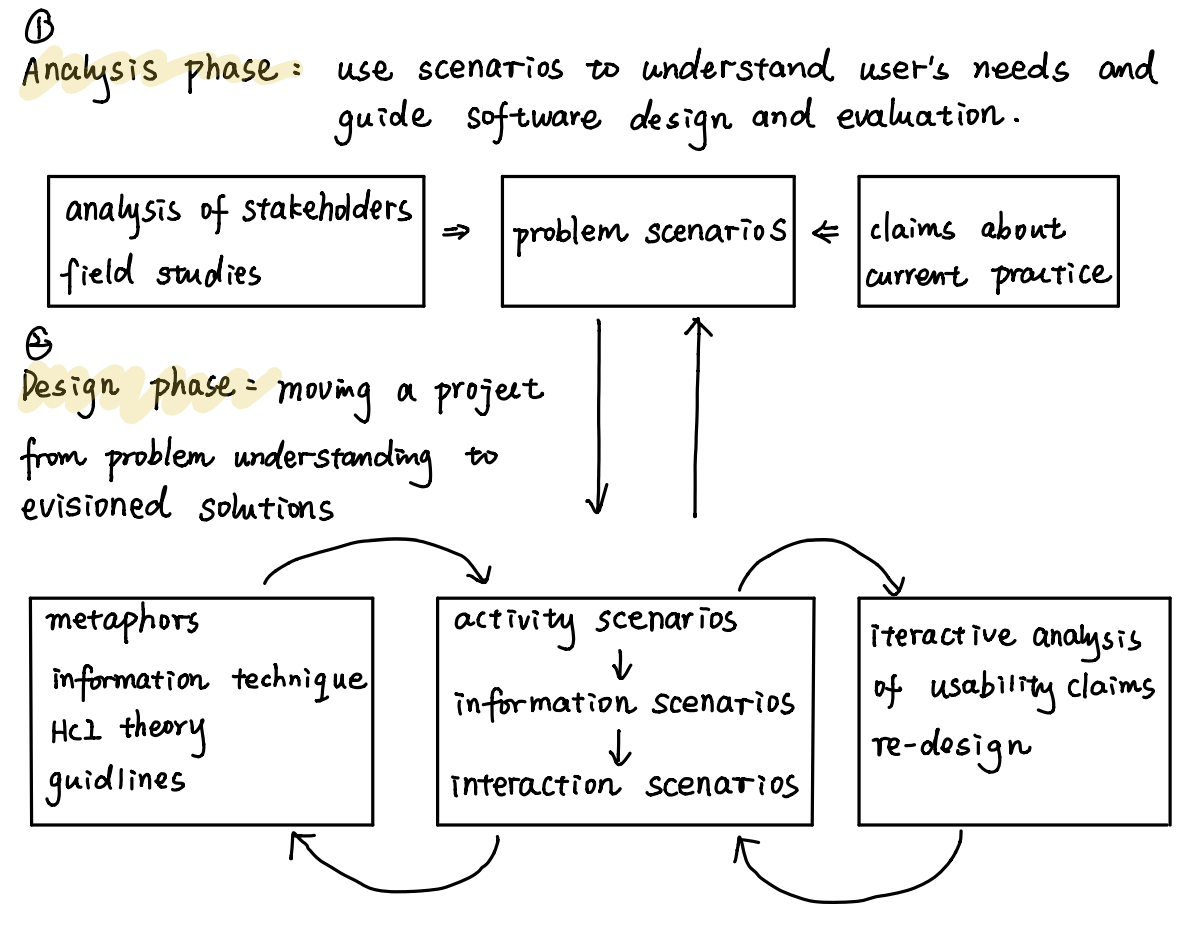 ①
Analysis phase: use scenarios to understand user's needs and
guide software design and evaluation.
analysis of stakeholders
field studies
⇒
problem scenarios
⇐
claims about
current practice
②
Design phase: moving a project
from problem understanding to
evisioned solutions
metaphors
information technique
HCI theory
guidlines
activity scenarios
↓
information scenarios
↓
interaction scenarios
iteractive analysis
of usability claims
re-design